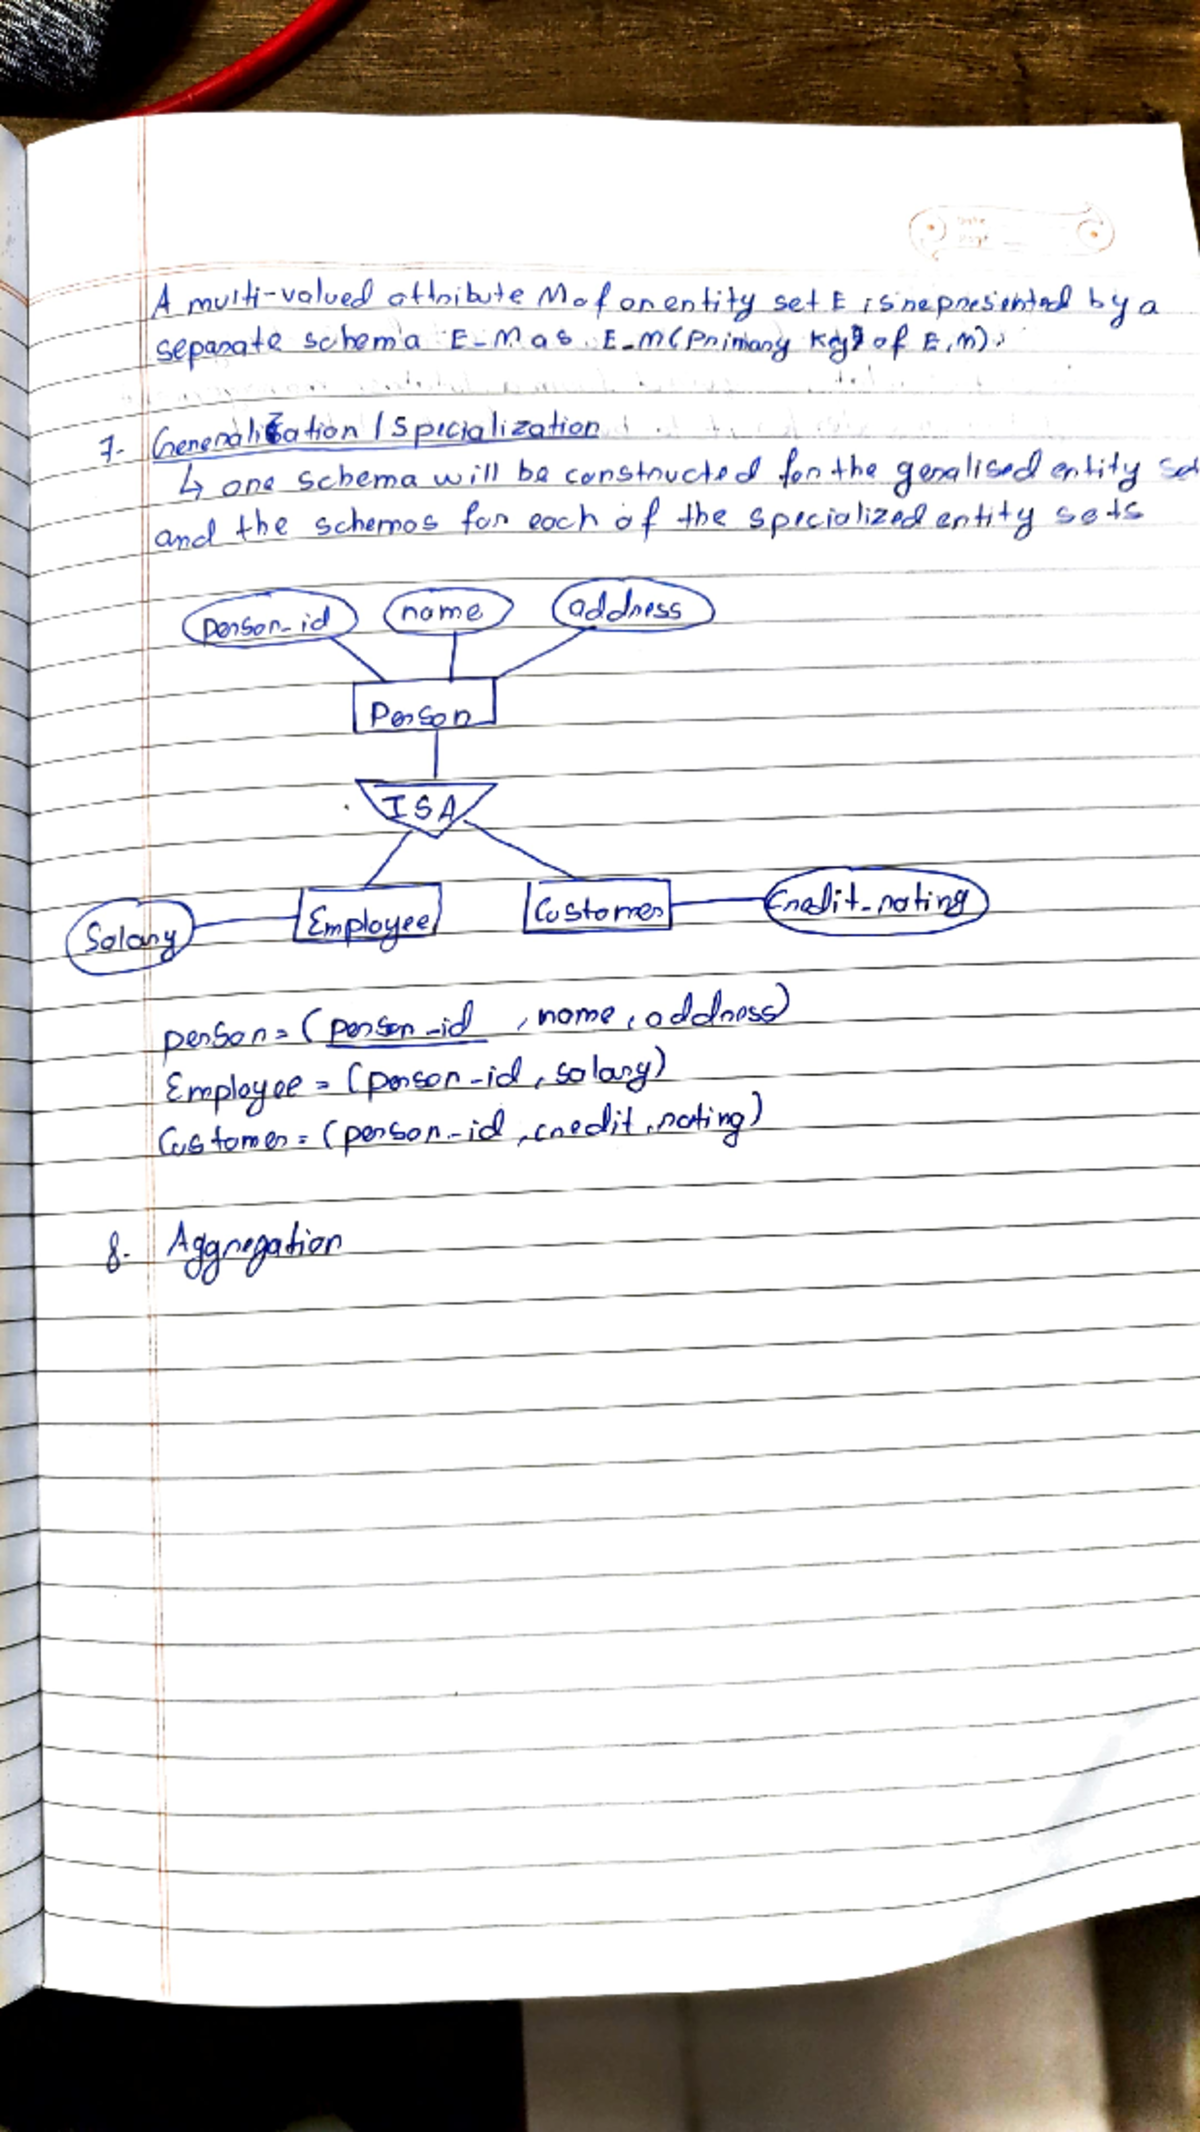 Date
Page
A multi-valued attribute M of an entity set E is represented by a
separate schema E-M as. E-M(Primary key of E, M).
7. Generalization / Specialization
↳ one schema will be constructed for the genralised entity set
and the schemas for each of the specialized entity sets
person-id name address
Person
ISA
Salary Employee Customer Credit-rating
person = (person-id, name, address)
Employee = (person-id, salary)
Customer = (person-id, credit-rating)
8. Aggregation